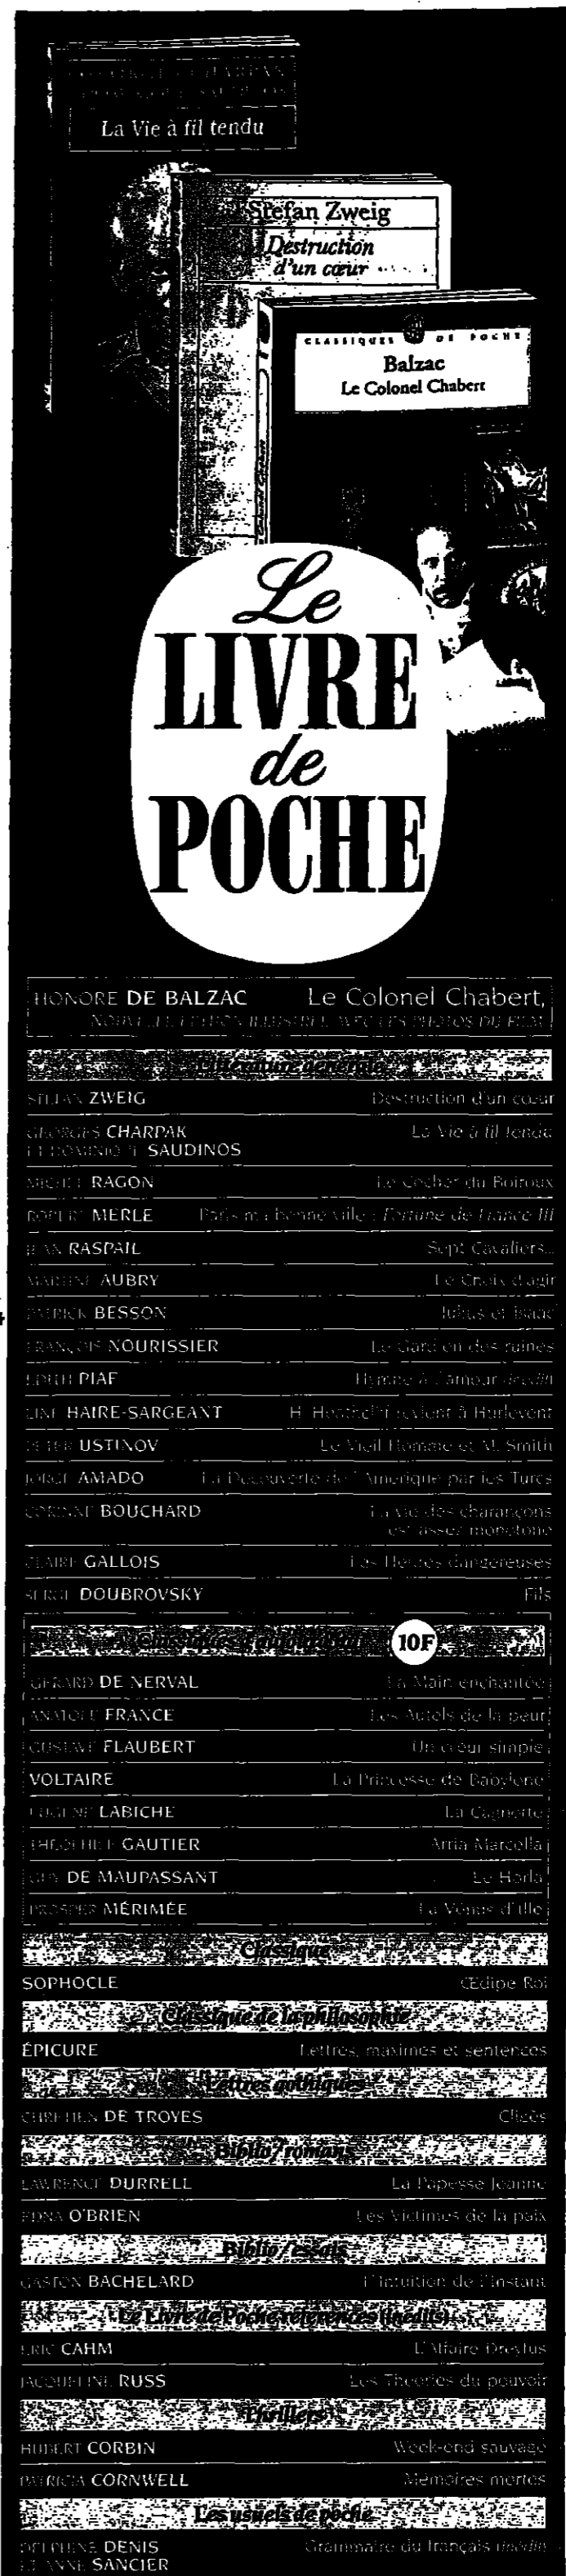 La Vie à fil tendu
Stefan Zweig
Destruction
d'un cœur
CLASSIQUES DE POCHE
Balzac
Le Colonel Chabert
Le
LIVRE
de
POCHE
HONORE DE BALZAC Le Colonel Chabert,
NOUVELLE EDITION ILLUSTREE AVEC LES PHOTOS DU FILM
Littérature générale
STEFAN ZWEIG Destruction d'un cœur
GEORGES CHARPAK La Vie à fil tendu
ET DOMINIQUE SAUDINOS
MICHEL RAGON Le Cocher du Boiroux
ROBERT MERLE Paris ma bonne ville : Fortune de France III
JEAN RASPAIL Sept Cavaliers...
MARTINE AUBRY Le Choix d'agir
PATRICK BESSON Julius et Isaac
FRANÇOIS NOURISSIER Le Gardien des ruines
EDITH PIAF Hymne à l'amour inédit
LINE HAIRE-SARGEANT H. Heathcliff revient à Hurlevent
PETER USTINOV Le Vieil Homme et M. Smith
JORGE AMADO La Découverte de l'Amérique par les Turcs
CORINNE BOUCHARD La vie des charançons
est assez monotone
CLAIRE GALLOIS Les Heures dangereuses
SERGE DOUBROVSKY Fils
Classiques d'aujourd'hui 10F
GERARD DE NERVAL La Main enchantée
ANATOLE FRANCE Les Autels de la peur
GUSTAVE FLAUBERT Un cœur simple
VOLTAIRE La Princesse de Babylone
EUGENE LABICHE La Cagnotte
THEOPHILE GAUTIER Arria Marcella
GUY DE MAUPASSANT Le Horla
PROSPER MÉRIMÉE La Vénus d'Ille
Classique
SOPHOCLE Œdipe Roi
Classique de la philosophie
ÉPICURE Lettres, maximes et sentences
Lettres gothiques
CHRETIEN DE TROYES Cligès
Biblio / romans
LAWRENCE DURRELL La Papesse Jeanne
EDNA O'BRIEN Les Victimes de la paix
Biblio / essais
GASTON BACHELARD L'Intuition de l'Instant
Le Livre de Poche références (inédits)
ERIC CAHM L'Affaire Dreyfus
JACQUELINE RUSS Les Théories du pouvoir
Thrillers
HUBERT CORBIN Week-end sauvage
PATRICIA CORNWELL Mémoires mortes
Les usuels de poche
DELPHINE DENIS Grammaire du français inédit
ET ANNE SANCIER